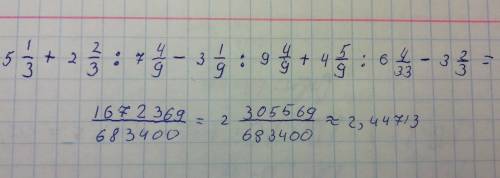 5 1/3 + 2 2/3 : 7 4/9 − 3 1/9 : 9 4/9 + 4 5/9 : 6 4/33 − 3 2/3 =
1672369/683400 = 2 305569/683400 ≈ 2,44713